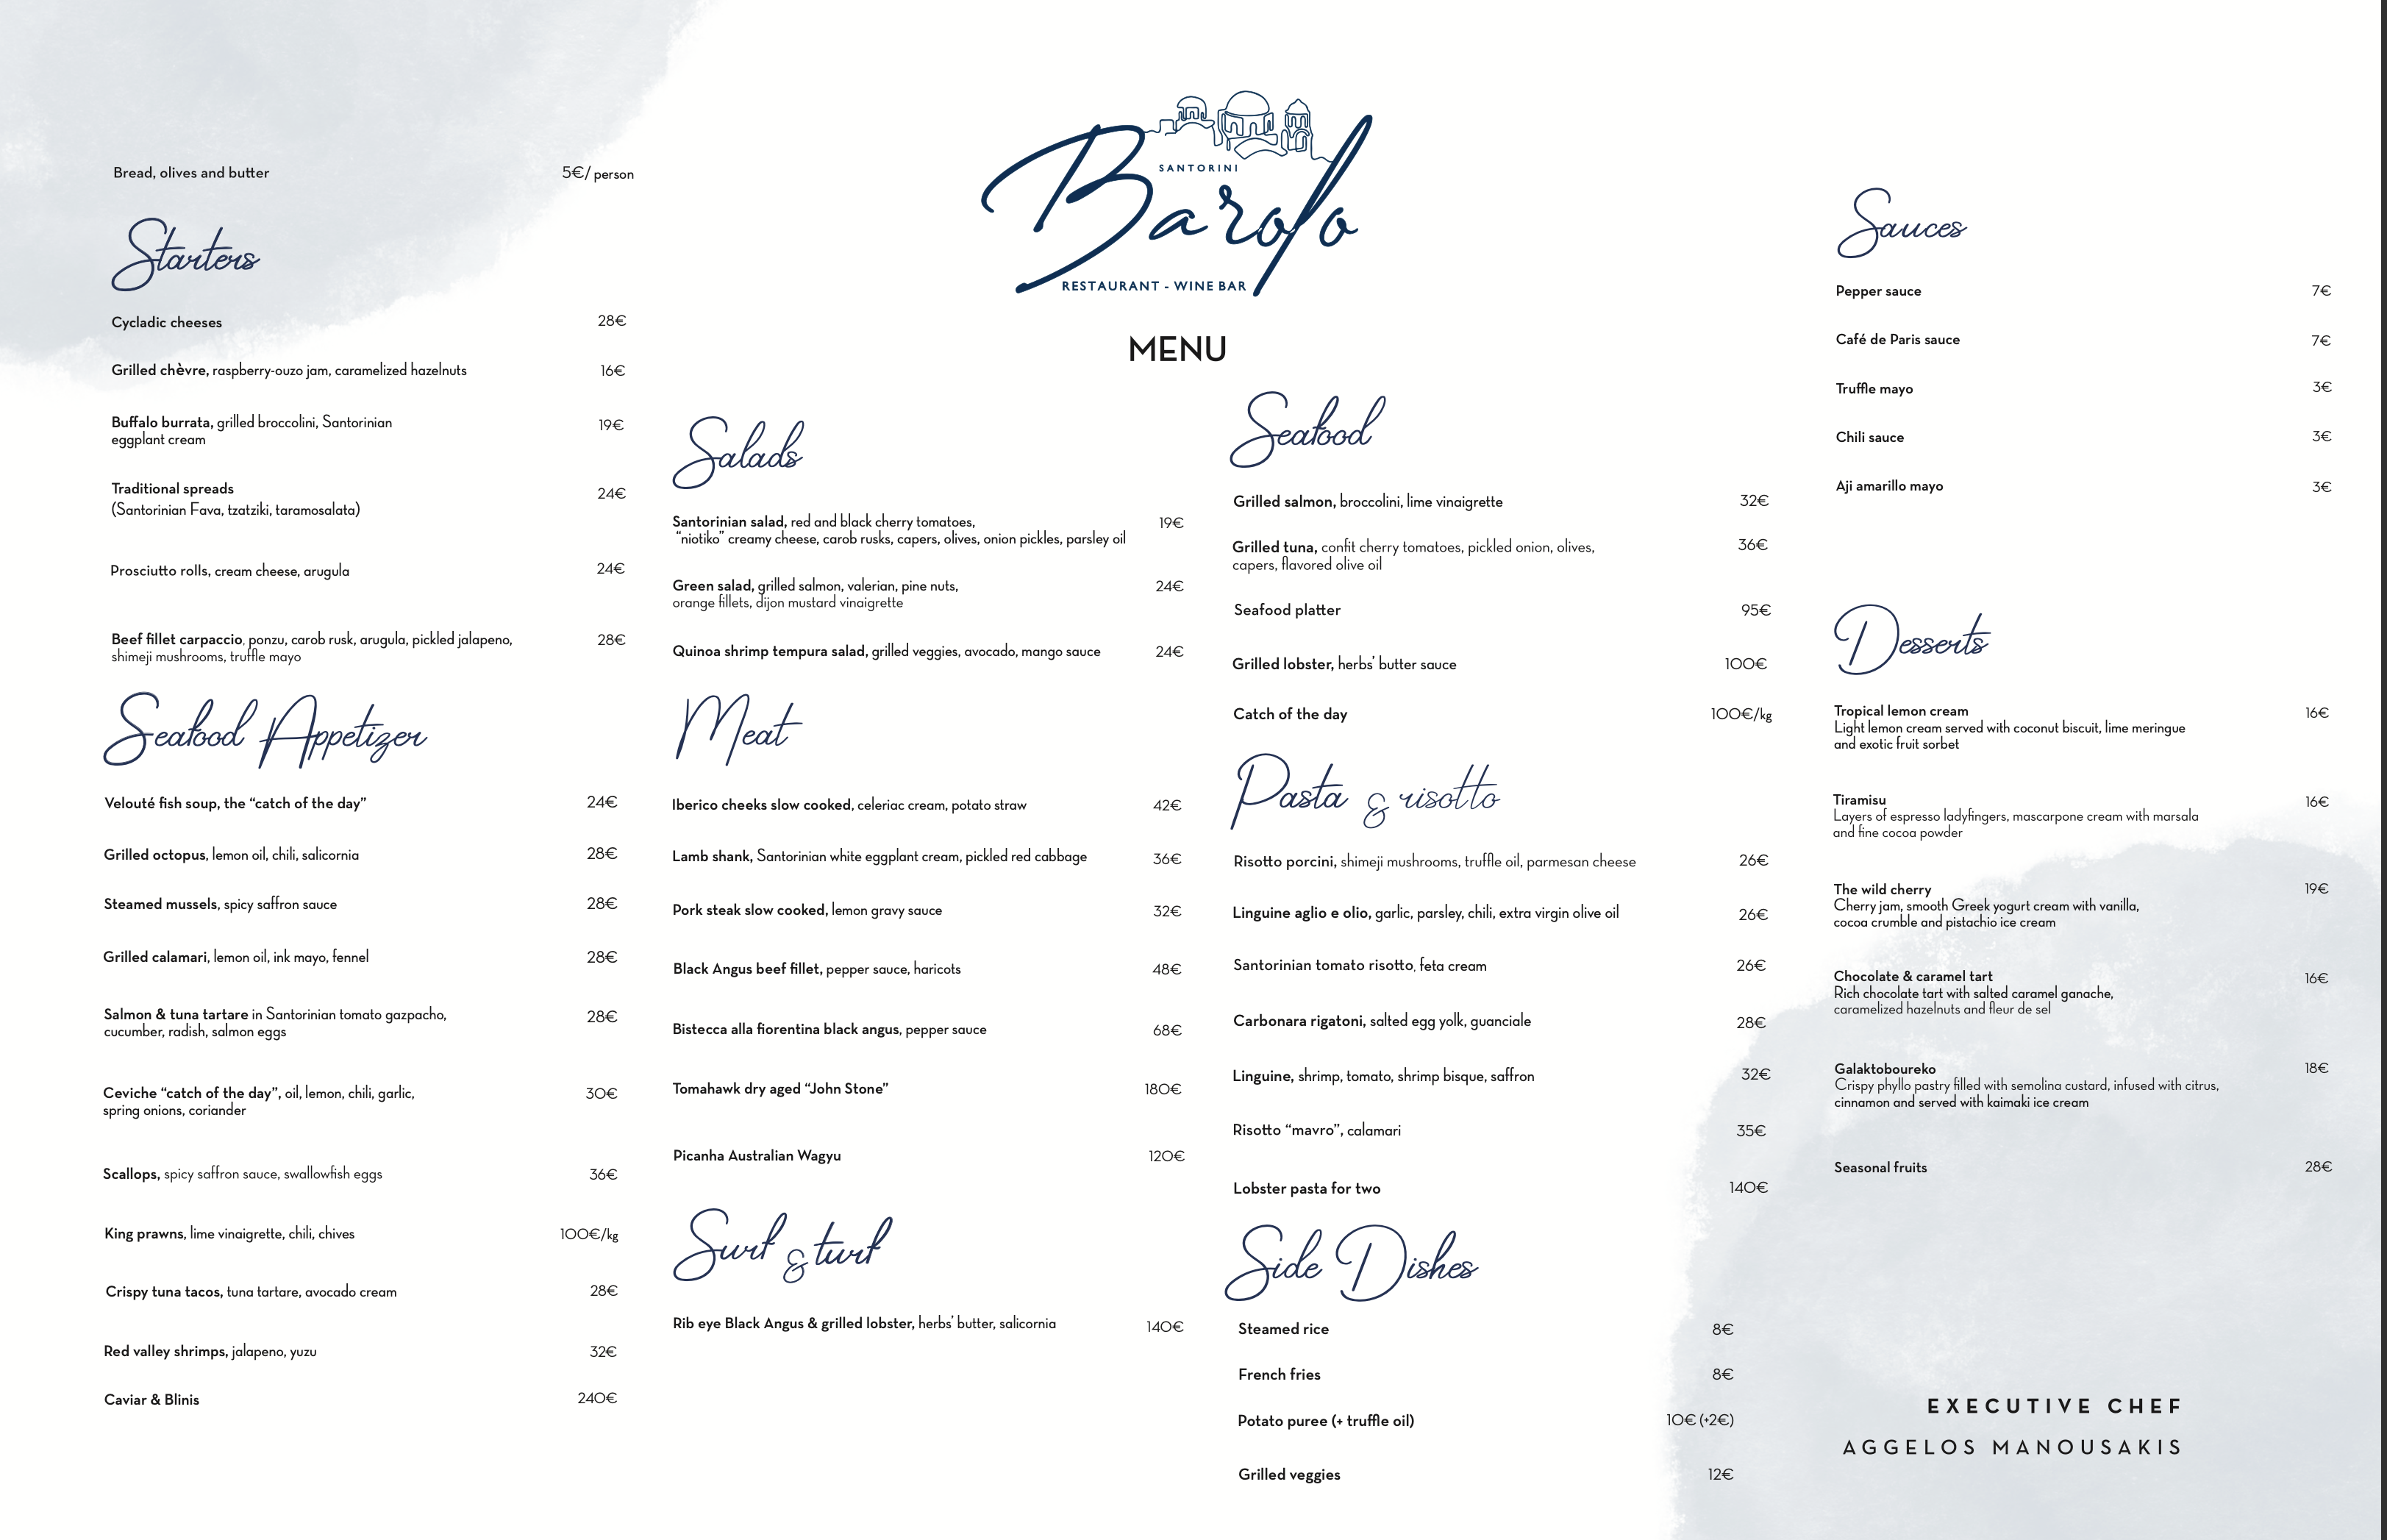 Bread, olives and butter 5€/ person
Starters
Cycladic cheeses 28€
Grilled chèvre, raspberry-ouzo jam, caramelized hazelnuts 16€
Buffalo burrata, grilled broccolini, Santorinian 19€
eggplant cream
Traditional spreads 24€
(Santorinian Fava, tzatziki, taramosalata)
Prosciutto rolls, cream cheese, arugula 24€
Beef fillet carpaccio, ponzu, carob rusk, arugula, pickled jalapeno, 28€
shimeji mushrooms, truffle mayo
Seafood Appetizer
Velouté fish soup, the “catch of the day” 24€
Grilled octopus, lemon oil, chili, salicornia 28€
Steamed mussels, spicy saffron sauce 28€
Grilled calamari, lemon oil, ink mayo, fennel 28€
Salmon & tuna tartare in Santorinian tomato gazpacho, 28€
cucumber, radish, salmon eggs
Ceviche “catch of the day”, oil, lemon, chili, garlic, 30€
spring onions, coriander
Scallops, spicy saffron sauce, swallowfish eggs 36€
King prawns, lime vinaigrette, chili, chives 100€/kg
Crispy tuna tacos, tuna tartare, avocado cream 28€
Red valley shrimps, jalapeno, yuzu 32€
Caviar & Blinis 240€
SANTORINI
Barolo
RESTAURANT - WINE BAR
MENU
Salads
Santorinian salad, red and black cherry tomatoes, 19€
“niotiko” creamy cheese, carob rusks, capers, olives, onion pickles, parsley oil
Green salad, grilled salmon, valerian, pine nuts, 24€
orange fillets, dijon mustard vinaigrette
Quinoa shrimp tempura salad, grilled veggies, avocado, mango sauce 24€
Meat
Iberico cheeks slow cooked, celeriac cream, potato straw 42€
Lamb shank, Santorinian white eggplant cream, pickled red cabbage 36€
Pork steak slow cooked, lemon gravy sauce 32€
Black Angus beef fillet, pepper sauce, haricots 48€
Bistecca alla fiorentina black angus, pepper sauce 68€
Tomahawk dry aged “John Stone” 180€
Picanha Australian Wagyu 120€
Surf & turf
Rib eye Black Angus & grilled lobster, herbs’ butter, salicornia 140€
Seafood
Grilled salmon, broccolini, lime vinaigrette 32€
Grilled tuna, confit cherry tomatoes, pickled onion, olives, 36€
capers, flavored olive oil
Seafood platter 95€
Grilled lobster, herbs’ butter sauce 100€
Catch of the day 100€/kg
Pasta & risotto
Risotto porcini, shimeji mushrooms, truffle oil, parmesan cheese 26€
Linguine aglio e olio, garlic, parsley, chili, extra virgin olive oil 26€
Santorinian tomato risotto, feta cream 26€
Carbonara rigatoni, salted egg yolk, guanciale 28€
Linguine, shrimp, tomato, shrimp bisque, saffron 32€
Risotto “mavro”, calamari 35€
Lobster pasta for two 140€
Side Dishes
Steamed rice 8€
French fries 8€
Potato puree (+ truffle oil) 10€ (+2€)
Grilled veggies 12€
Sauces
Pepper sauce 7€
Café de Paris sauce 7€
Truffle mayo 3€
Chili sauce 3€
Aji amarillo mayo 3€
Desserts
Tropical lemon cream 16€
Light lemon cream served with coconut biscuit, lime meringue
and exotic fruit sorbet
Tiramisu 16€
Layers of espresso ladyfingers, mascarpone cream with marsala
and fine cocoa powder
The wild cherry 19€
Cherry jam, smooth Greek yogurt cream with vanilla,
cocoa crumble and pistachio ice cream
Chocolate & caramel tart 16€
Rich chocolate tart with salted caramel ganache,
caramelized hazelnuts and fleur de sel
Galaktoboureko 18€
Crispy phyllo pastry filled with semolina custard, infused with citrus,
cinnamon and served with kaimaki ice cream
Seasonal fruits 28€
EXECUTIVE CHEF
AGGELOS MANOUSAKIS